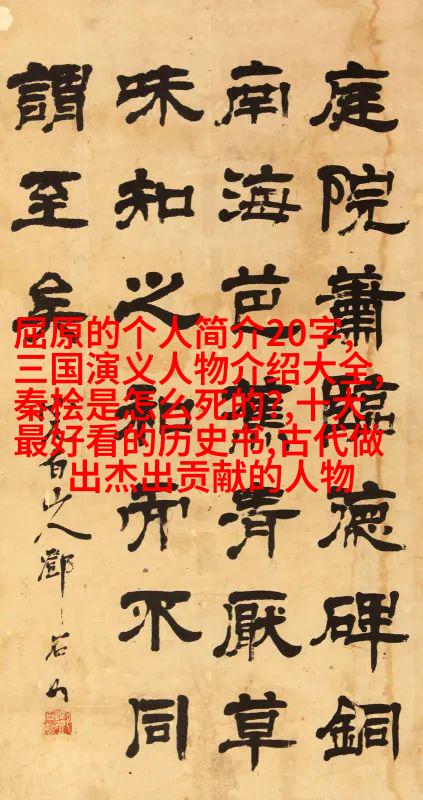 庭院蕭臨德碑銅
南海芭蕉青厭草
味知之不同
謂至矣
白山人鄧石如
屈原的个人简介20字,
三国演义人物介绍大全,
秦桧是怎么死的?,十大
最好看的历史书,古代做
出杰出贡献的人物